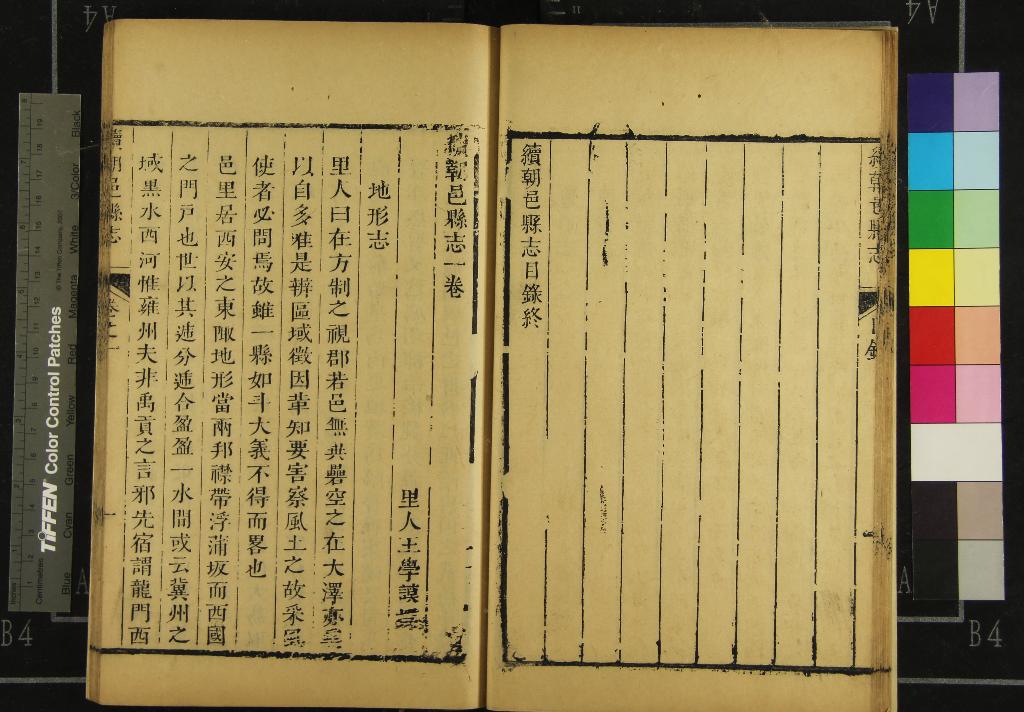 續朝邑縣志
目錄
續朝邑縣志目錄終
續朝邑縣志一卷
里人王學謨
地形志
里人曰在方制之視郡若邑無異礨空之在大澤亦
以自多難是辨區域徵因革知要害察風土之故采風
使者必問焉故雖一縣如斗大義不得而畧也
邑里居西安之東陬地形當兩邦襟帶浮蒲坂而西國
之門戸也世以其遞分遞合盈盈一水間或云冀州之
域黒水西河惟雍州夫非禹貢之言邪先宿謂龍門西
續朝邑縣志
卷之一
一
TIFFEN Color Control Patches
© The Tiffen Company, 2007
Centimetres
Inches
Blue
Cyan
Green
Yellow
Red
Magenta
White
3/Color
Black
A4
A4
A
A
B4
B4